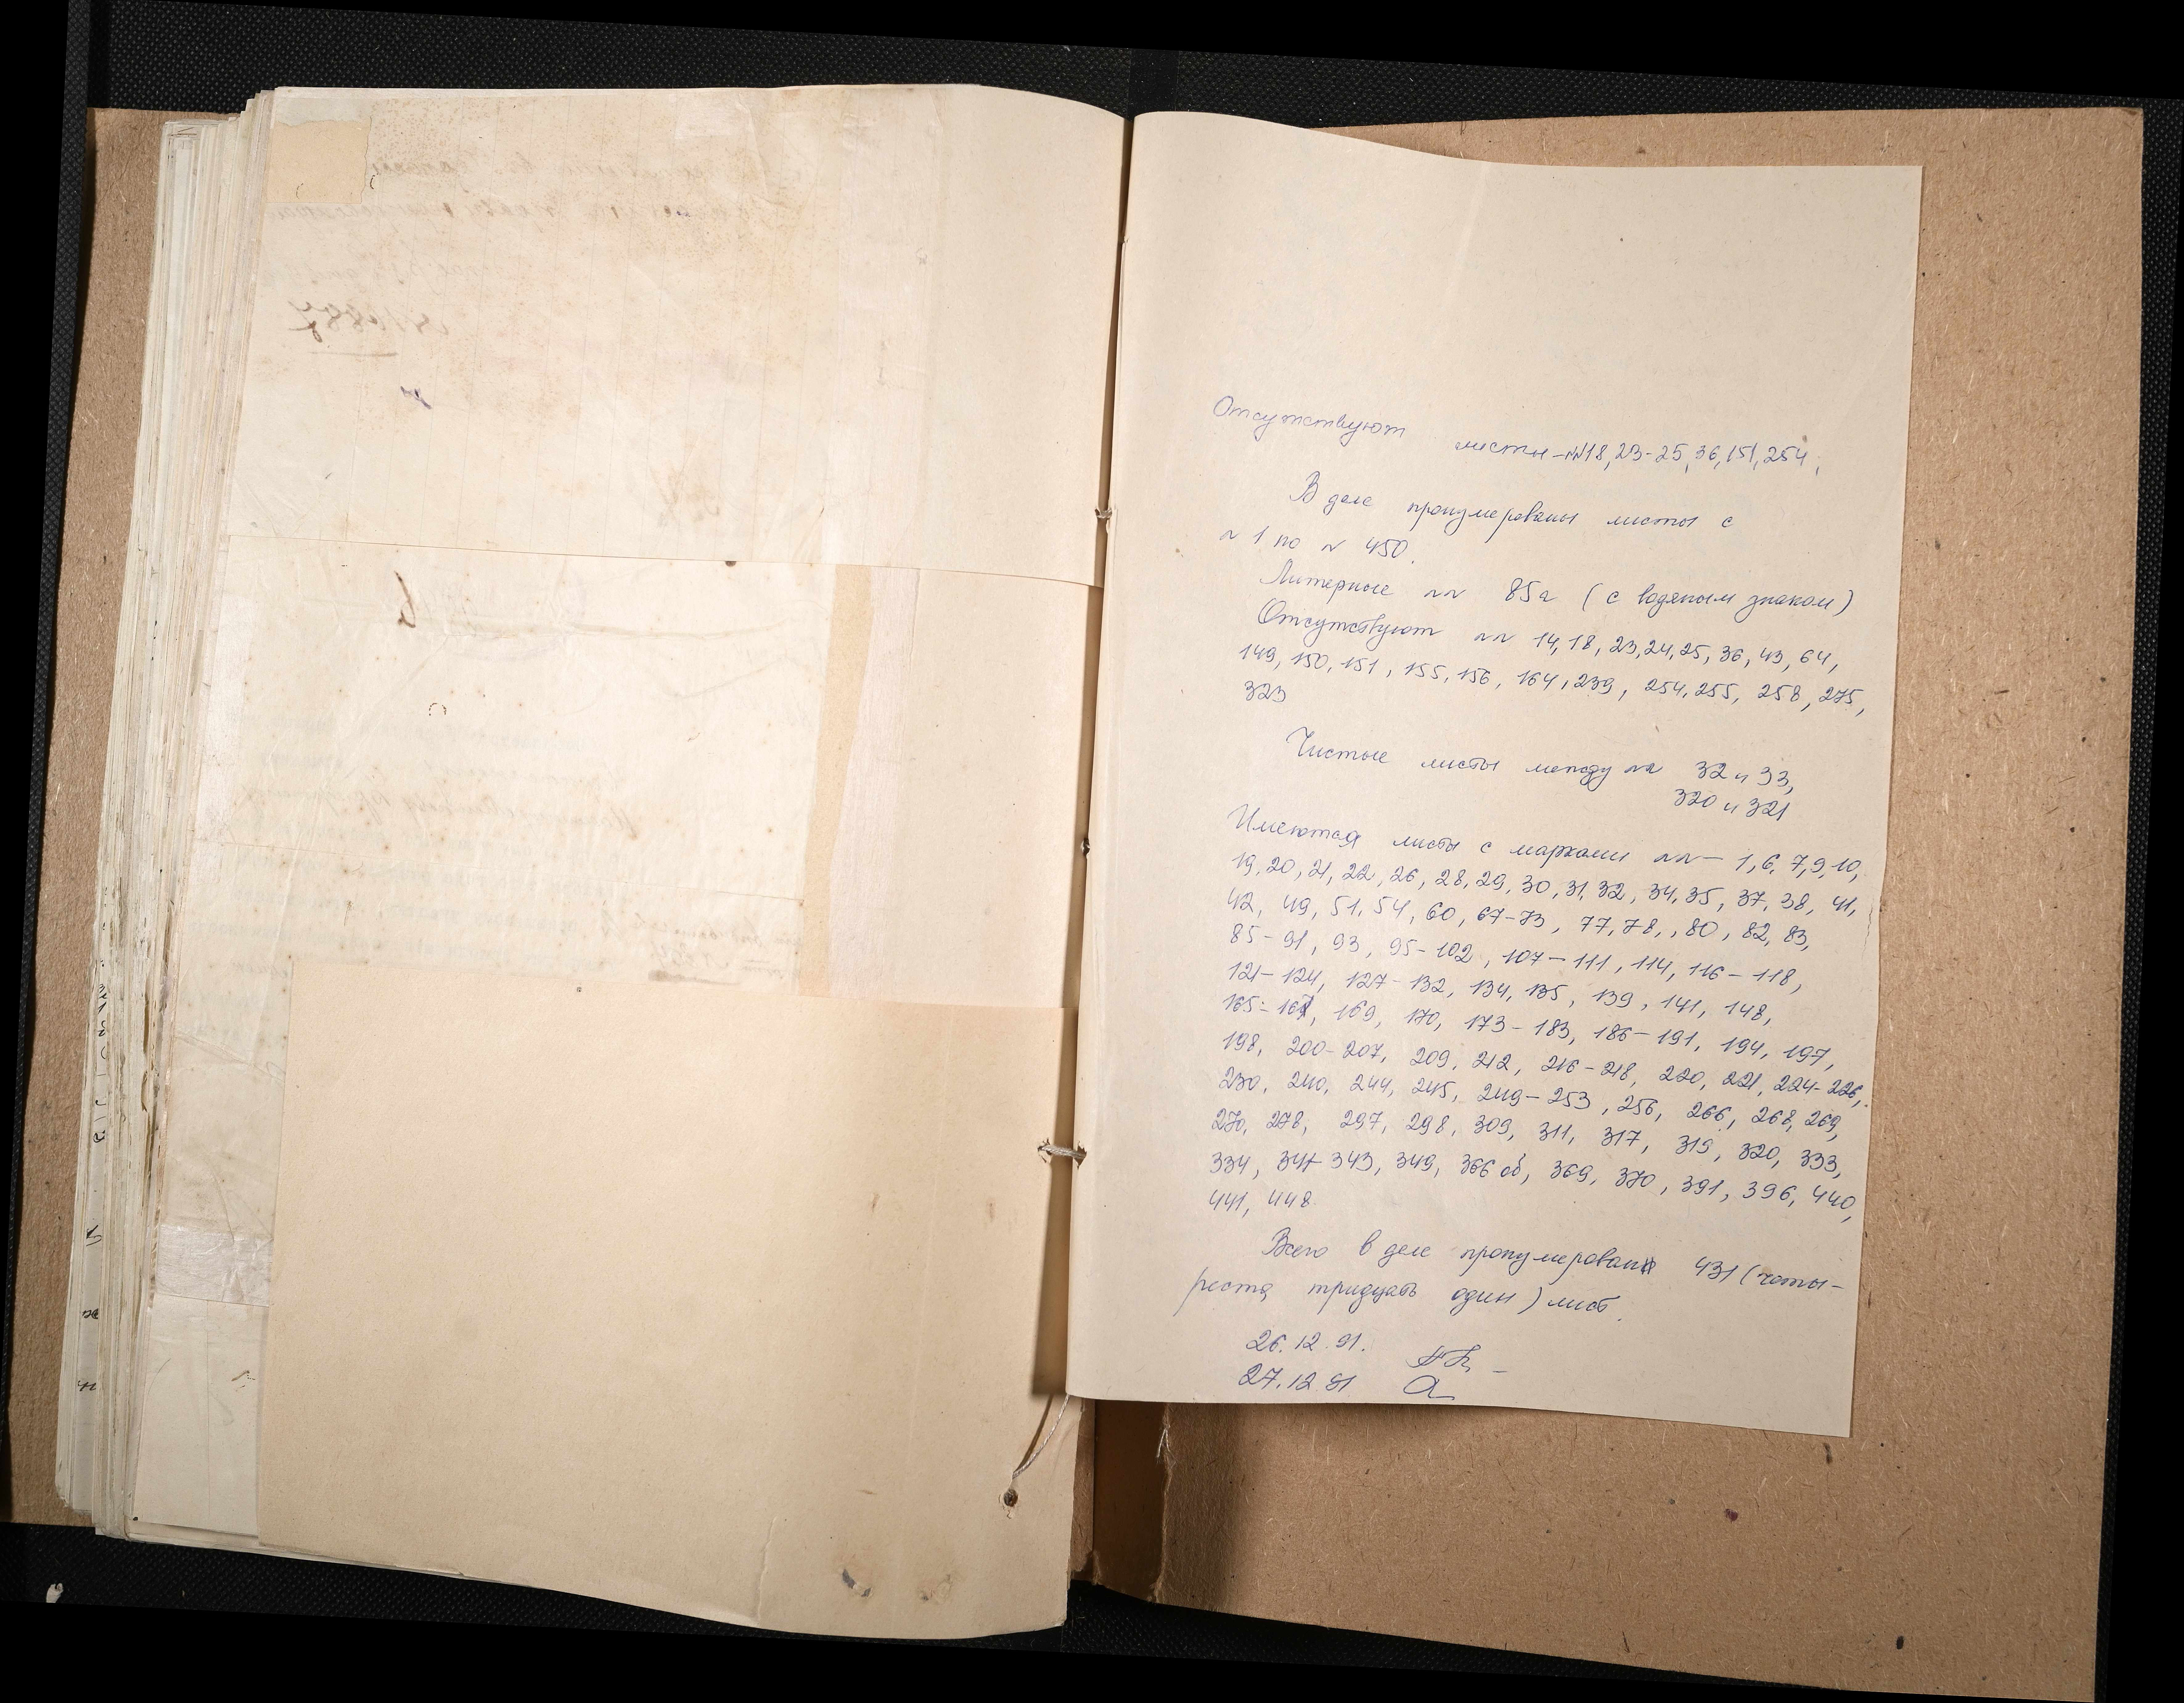 Отсутствуют листы - №№ 18, 23-25, 36, 151, 254,
В деле пронумерованы листы с
№ 1 по № 450.
Литерные №№ 85а (с водяным знаком)
Отсутствуют №№ 14, 18, 23, 24, 25, 36, 43, 64,
149, 150, 151, 155, 156, 164, 239, 254, 255, 258, 275,
323
Чистые листы между №№ 32 и 33,
320 и 321
Имеются листы с марками №№ - 1, 6, 7, 9, 10,
19, 20, 21, 22, 26, 28, 29, 30, 31, 32, 34, 35, 37, 38, 41,
42, 49, 51, 54, 60, 67-73, 77, 78, , 80, 82, 83,
85-91, 93, 95-102, 107-111, 114, 116-118,
121-124, 127-132, 134, 135, 139, 141, 148,
165- 169, 170, 173-183, 186-191, 194, 197,
198, 200-207, 209, 212, 216-218, 220, 221, 224-226,
230, 240, 244, 245, 249-253, 256, 266, 268, 269,
270, 278, 297, 298, 309, 311, 317, 319, 320, 333,
334, 341-343, 349, 366 об, 369, 370, 391, 396, 440,
441, 448
Всего в деле пронумерован 431 (четы-
реста тридцать один) лист.
26.12.91.
27.12.91